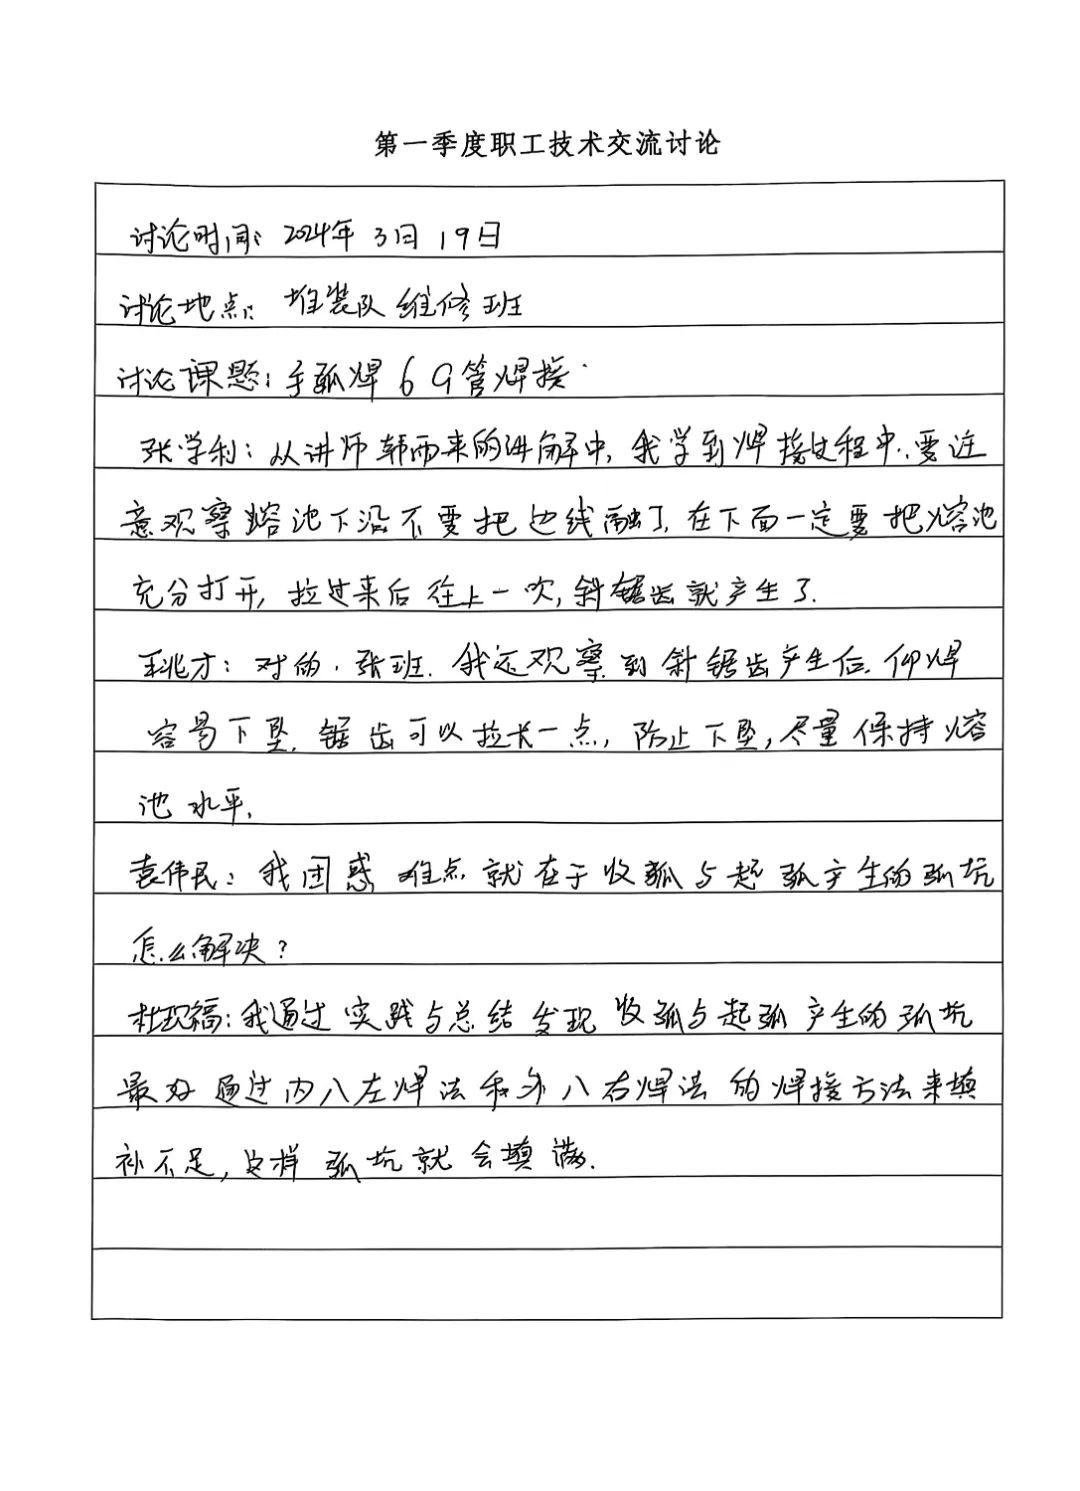 第一季度职工技术交流讨论
讨论时间: 2024年3日19日
讨论地点: 堆装队维修班
讨论课题: 手弧焊6G管焊接.
张学利: 从讲师韩雨来的讲解中,我学到焊接过程中,要注
意观察熔池下沿不要把边线融了,在下面一定要把熔池
充分打开,拉过来后往上一吹,斜锯齿就产生了.
王兆才: 对的.张班.我还观察到斜锯齿产生后.仰焊
容易下坠.锯齿可以拉长一点,防止下坠,尽量保持熔
池水平.
袁伟民: 我困惑难点就在于收弧与起弧产生的弧坑
怎么解决?
杜现福: 我通过实践与总结发现收弧与起弧产生的弧坑
最好通过内八左焊法和外八右焊法的焊接方法来填
补不足,这样弧坑就会填满.